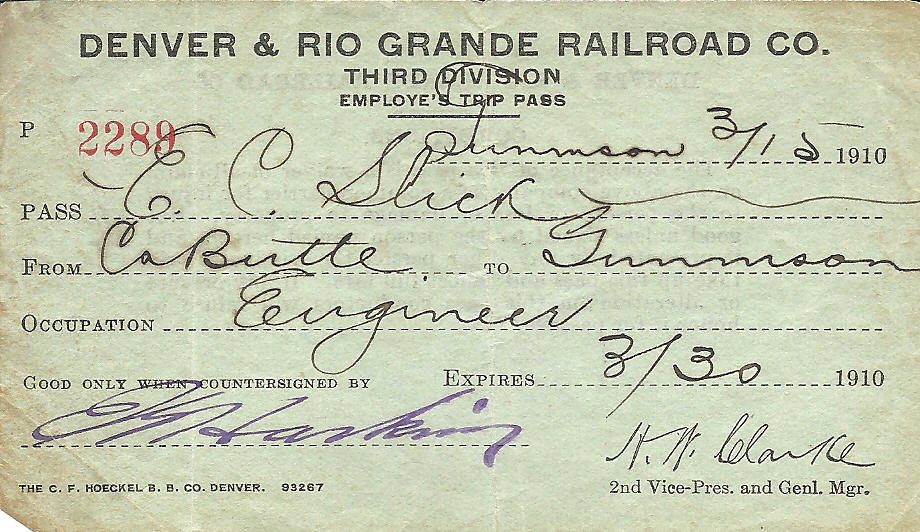 DENVER & RIO GRANDE RAILROAD CO.
THIRD DIVISION
EMPLOYE'S TRIP PASS
P 2289
Gunnison 3/15 1910
PASS E. C. Slick
FROM Cs Butte TO Gunnison
OCCUPATION Engineer
GOOD ONLY WHEN COUNTERSIGNED BY EXPIRES 3/30 1910
H. W. Clarke
THE C. F. HOECKEL B. B. CO. DENVER. 93267 2nd Vice-Pres. and Genl. Mgr.